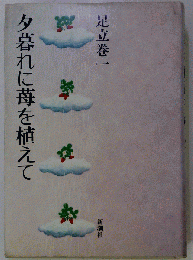 夕暮れに苺を植えて
足立巻一
新潮社